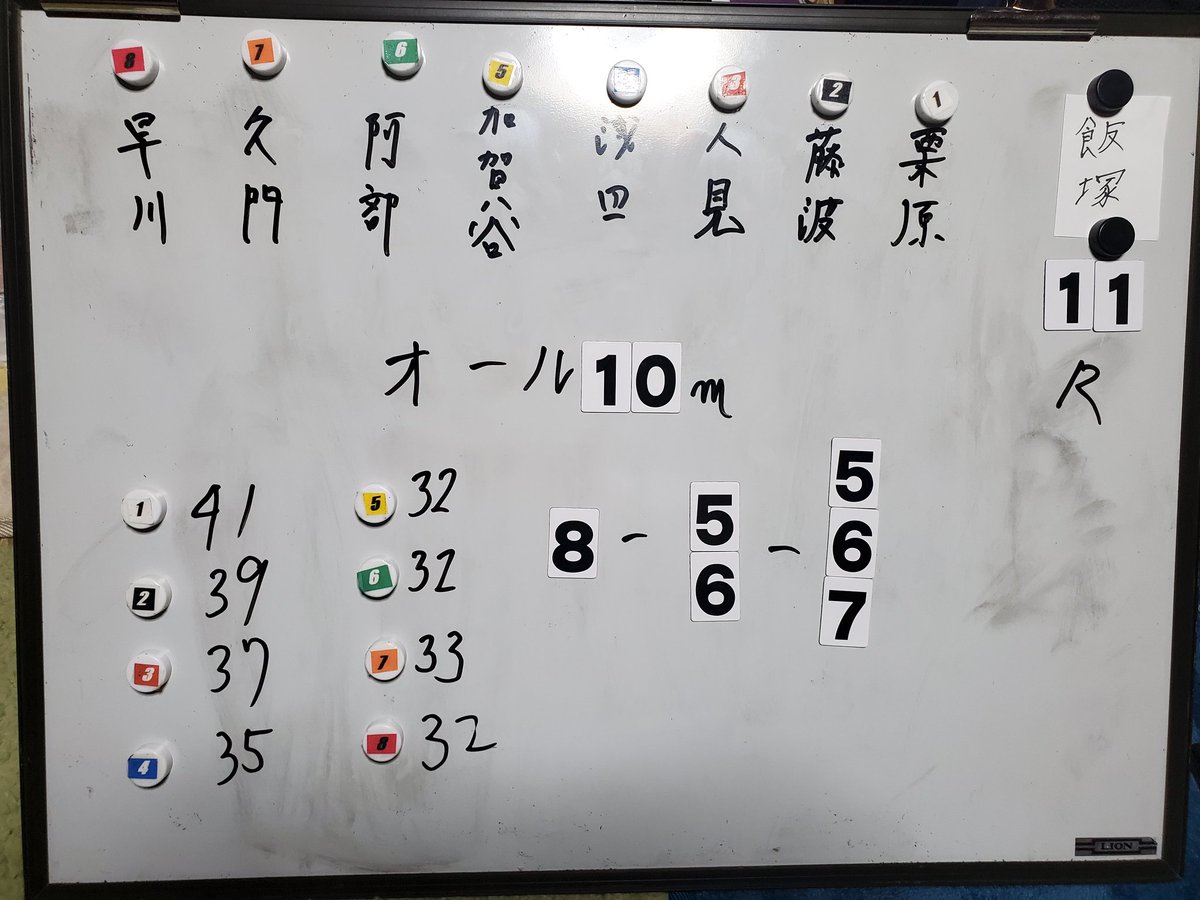 8 7 6 5 4 3 2 1
早川 久門 阿部 加賀谷 浅田 人見 藤波 栗原 飯塚
11
R
オール10m
1 41
2 39
3 37
4 35
5 32
6 32
7 33
8 32
8 - 56 - 567
LION